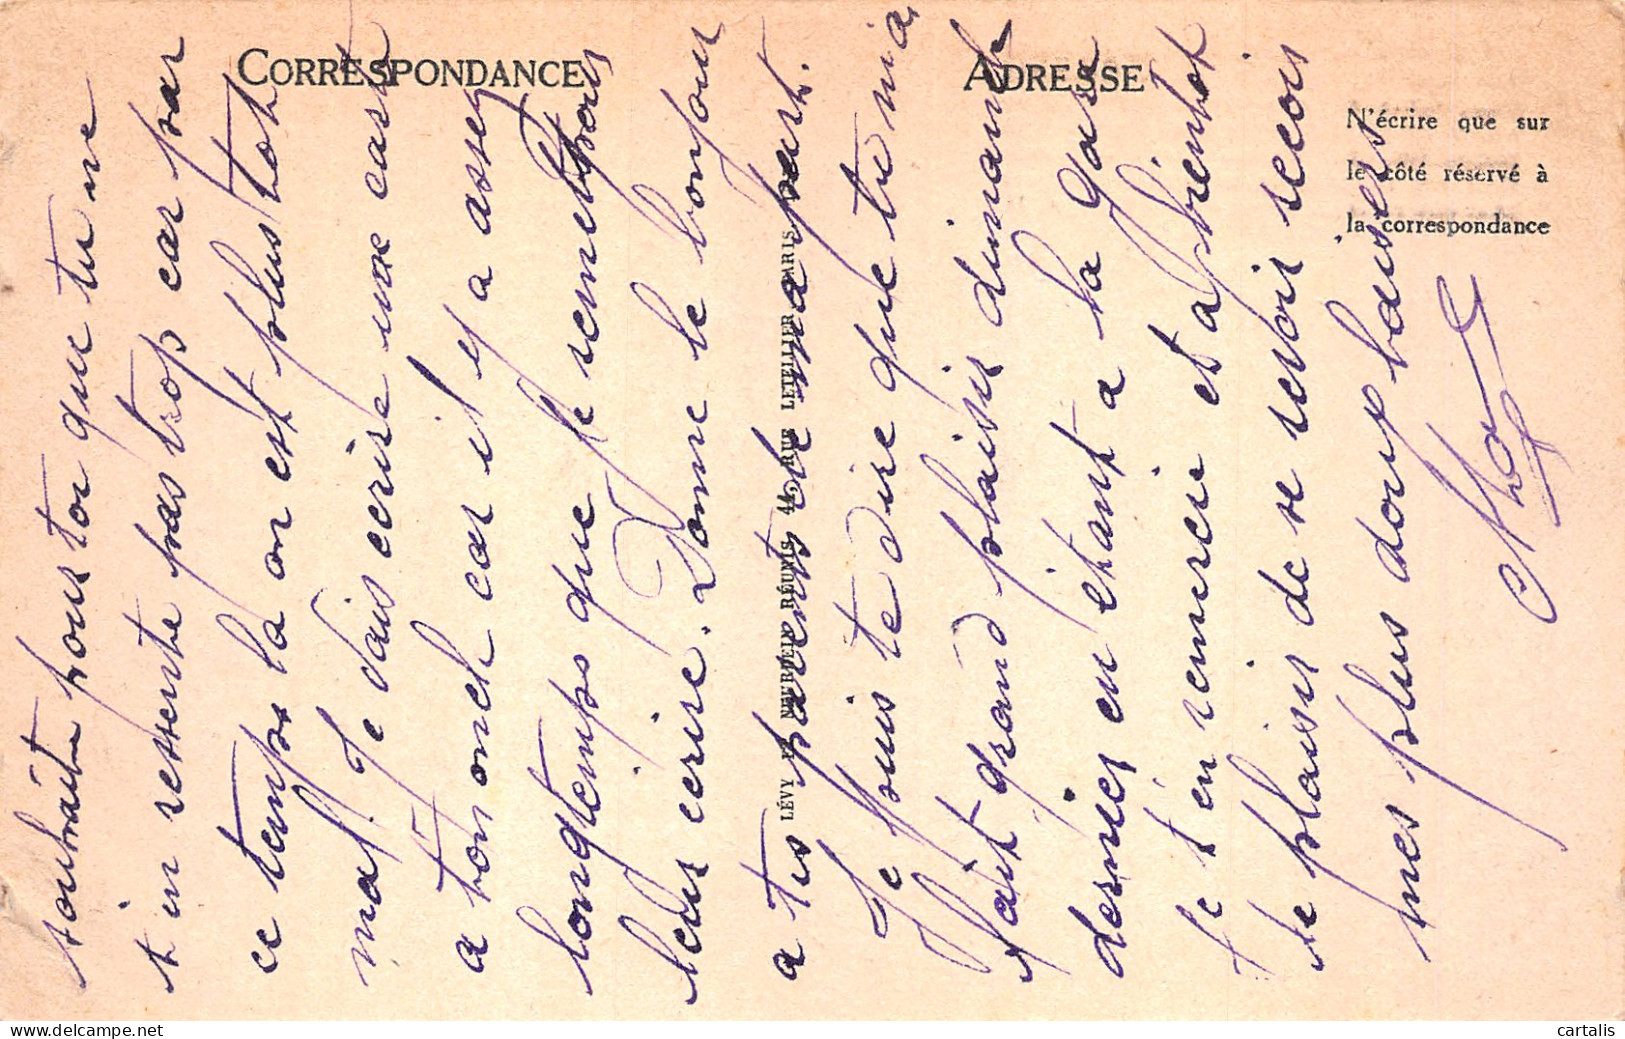 CORRESPONDANCE
ADRESSE
N'écrire que sur
le côté réservé à
la correspondance
LÉVY ET NEURDEIN RÉUNIS, 44, RUE LETELLIER, PARIS
souhaite pour toi que tu ne
t'en ressente pas trop car par
ce temps la on est plus tot
mal. Je vais ecrire une carte
a ton oncle car il y a assez
longtemps que je remet pour
leur ecrire. Donne le bonjour
a tes parents de ma part.
Je puis te dire que tu m'a
fait grand plaisir dimanche
dernier en etant a la gare
je t'en remercie et a bientot
le plaisir de se revoir recois
mes plus doux baisers
cartalis